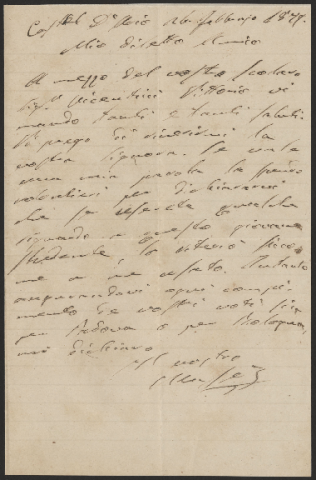 Mio diletto Amico
A mezzo del vostro scolaro
Sig.r Vicentini Vittorio vi
mando tanti e tanti saluti.
Vi prego di riverirmi la
vostra signora. Se vale
una mia parola la
per dichiararvi
che se userete qualche
riguardo a questo giovane
studente, lo riterrò sicco-
me a me usato. Intanto
augurandovi ogni compi-
mento de' vostri voti sia
per Padova o per Bologna,
mi dichiaro
vostro